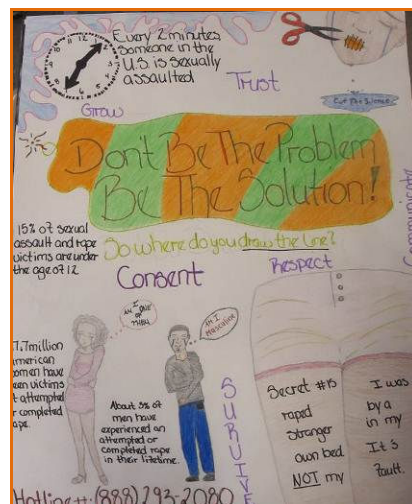 Every 2 minutes
Someone in the
U.S is sexually
assaulted
Trust
Cut the Silence
Grow
Don't Be The Problem
Be The Solution!
15% of sexual
assault and rape
victims are under
the age of 12
So where do you draw the line?
Consent
Respect
Am I one
of
them
Am I
Masculine
7.7 million
American
women have
een victims
f attempted
r completed
ape.
About 3% of
men have
experienced an
attempted or
completed rape
in their lifetime.
SURVIVE
Secret #15 I was
raped by a
stranger in my
own bed It's
NOT my fault.
Hotline#: (888) 293-2080